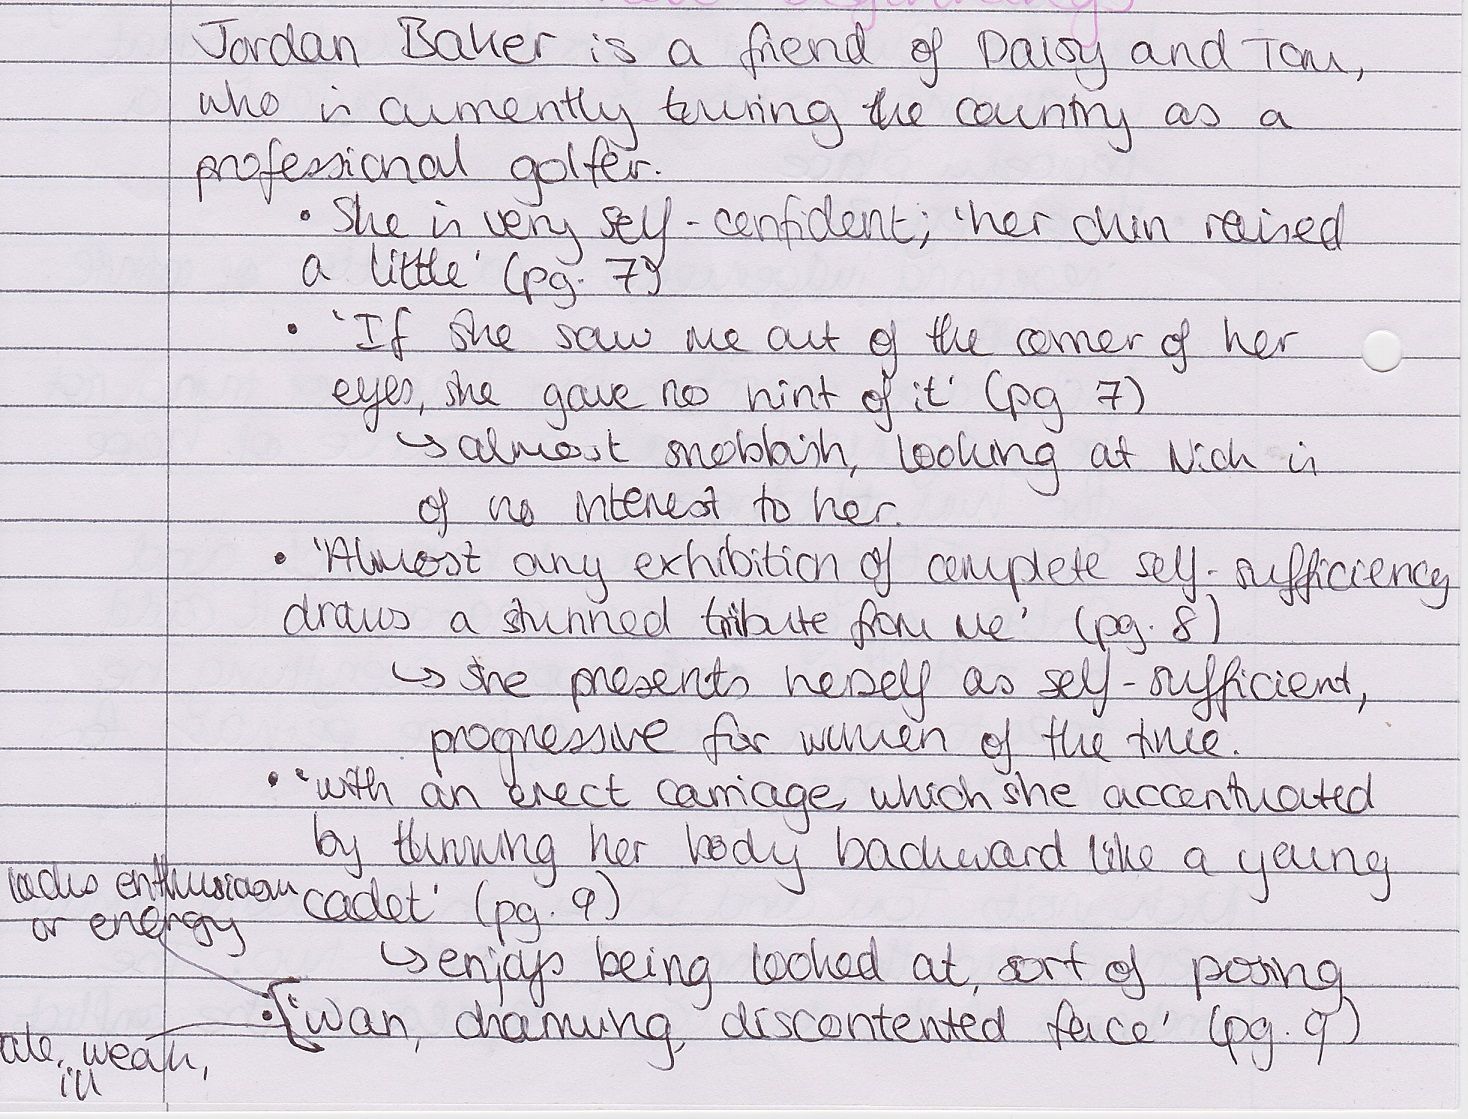 new beginnings
Jordan Baker is a friend of Daisy and Tom,
who is currently touring the country as a
professional golfer.
• She is very self-confident; 'her chin raised
a little' (pg. 7)
• 'If she saw me out of the corner of her
eyes, she gave no hint of it' (pg 7)
↳ almost snobbish, looking at Nick is
of no interest to her.
• 'Almost any exhibition of complete self-sufficiency
draws a stunned tribute from me' (pg. 8)
↳ She presents herself as self-sufficient,
progressive for women of the time.
• 'with an erect carriage, which she accentuated
by thrwing her body backward like a young
cadet' (pg. 9)
lacks enthusiasm
or energy
↳ enjoys being looked at, sort of posing
• 'Wan, charming, discontented face' (pg. 9)
ale, weak,
ill